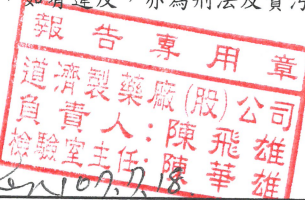 如有違反，亦為刑法及貪污
報告專用章
道濟製藥廠(股)公司
負責人:陳飛雄
檢驗室主任:陳華雄
107.7.18.